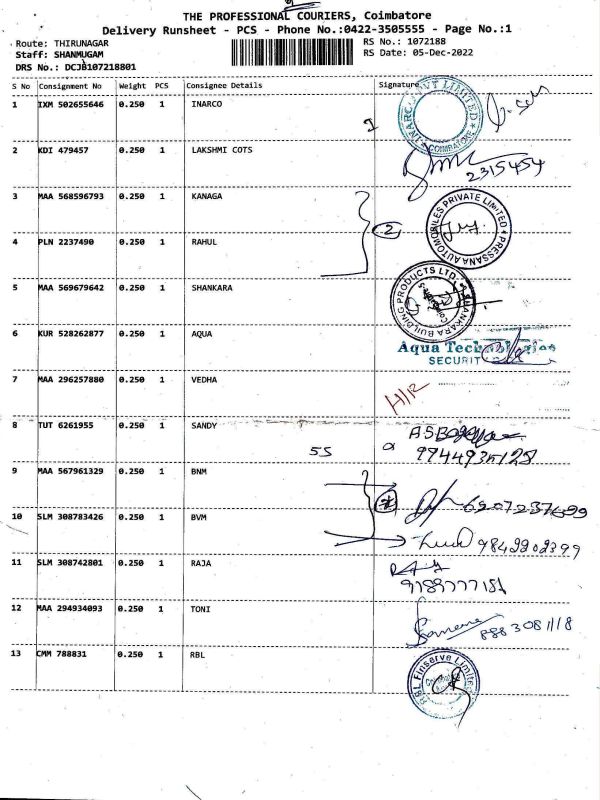 THE PROFESSIONAL COURIERS, Coimbatore
Delivery Runsheet - PCS - Phone No.:0422-3505555 - Page No.:1
Route: THIRUNAGAR
RS No.: 1072188
Staff: SHANMUGAM
RS Date: 05-Dec-2022
DRS No.: DCJB107218801
S No Consignment No Weight PCS Consignee Details Signature
1 IXM 502655646 0.250 1 INARCO
2 KDI 479457 0.250 1 LAKSHMI COTS
2315454
3 MAA 568596793 0.250 1 KANAGA
2
PRESSANA AUTOMOBILES PRIVATE LIMITED
4 PLN 2237490 0.250 1 RAHUL
5 MAA 569679642 0.250 1 SHANKARA
SHANKARA BUILDING PRODUCTS LTD
6 KUR 528262877 0.250 1 AQUA
Aqua Technologies
SECURIT
7 MAA 296257880 0.250 1 VEDHA
H/R
8 TUT 6261955 0.250 1 SANDY
55
9944935128
9 MAA 567961329 0.250 1 BNM
10 SLM 308783426 0.250 1 BVM
9842202399
11 SLM 308742801 0.250 1 RAJA
12 MAA 294934093 0.250 1 TONI
13 CMM 788831 0.250 1 RBL
RBL Finserve Limited